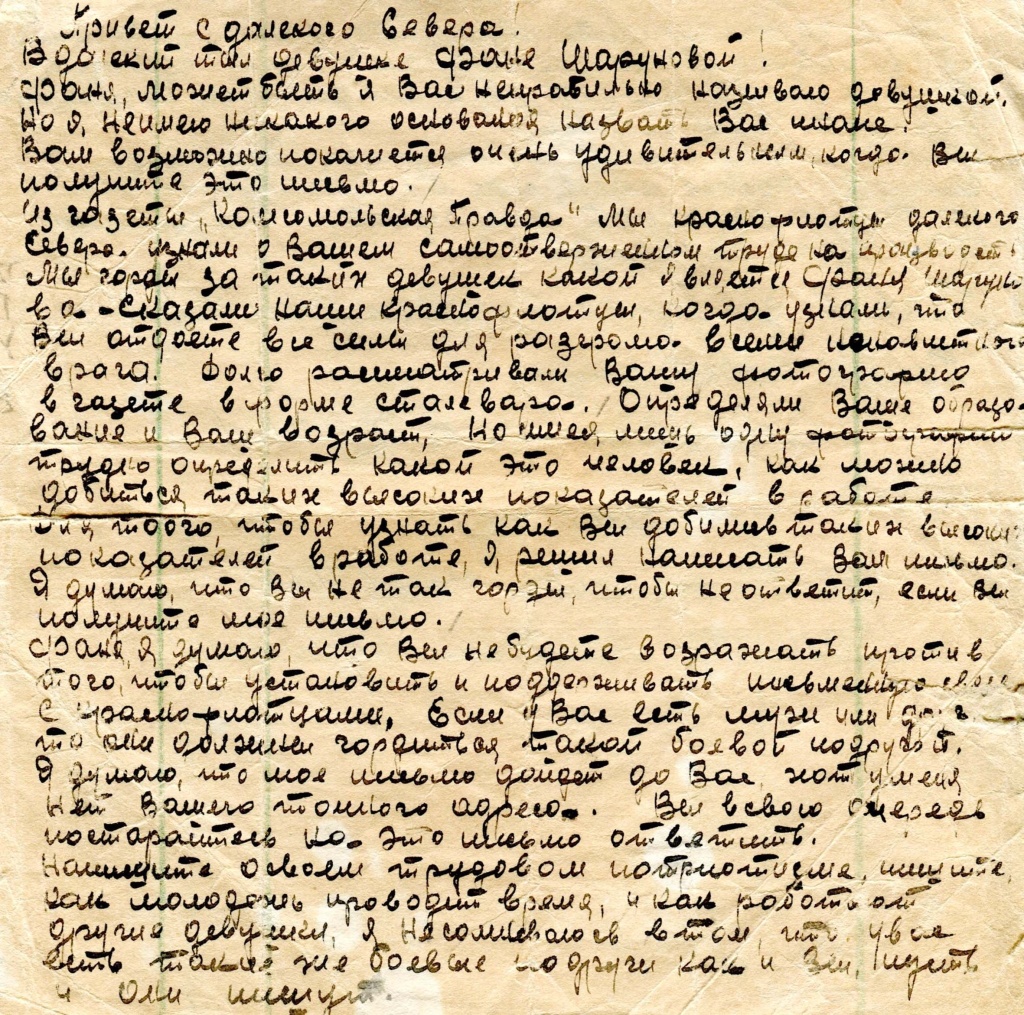 Привет с далекого Севера!
В далекий тыл девушке Фане Шаруновой!
Фаня, может быть я Вас неправильно называю девушкой.
Но я, неимею никакого основания назвать Вас иначе.
Вам возможно покажется очень удивительным, когда Вы
получите это письмо.
Из газеты „Комсомольская Правда" мы краснофлотцы далекого
Севера узнали о Вашем самоотверженном труде на
Мы горды за таких девушек какой является Фаня Шаруно
ва - Сказали наши краснофлотцы, когда узнали, что
Вы отдаете все силы для разгрома всеми ненавистного
врага. Долго рассматривали Вашу фотографию
в газете в форме сталевара. Определяли Ваше образо-
вание и Ваш возраст, Но имея лишь одну фотографию
трудно определить какой это человек, как можно
добиться таких высоких показателей в работе
Для того, чтобы узнать как Вы добились таких высоких
показателей в работе, я решил написать Вам письмо.
Я думаю, что Вы не так горды, чтобы не ответит, если Вы
получите мое письмо.
Фаня, я думаю, что Вы небудете возражать против
того, чтобы установить и поддерживать письменную связь
с краснофлотцами, Если у Вас есть муж или друг
то они должны гордиться такой боевой подругой.
Я думаю, что мое письмо дойдет до Вас, хот у меня
нет Вашего точного адреса. Вы в свою очередь
постарайтесь на это письмо ответить.
Напишите освоем трудовом патриотизме, пишите,
как молодежь проводит время, и как работают
другие девушки, я несомневаюсь в том, что увас
есть такие же боевые подруги как и Вы, пусть
и они пишут.